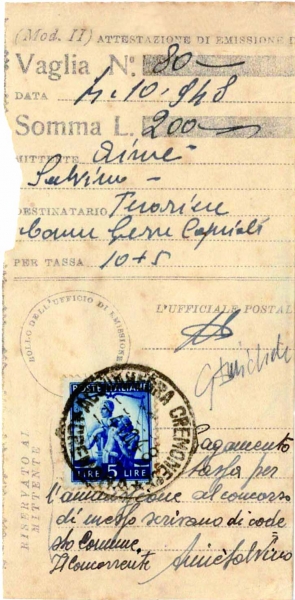 (Mod. II) ATTESTAZIONE DI EMISSIONE D
Vaglia N.° 80
DATA 4.10.948
Somma L. 200
MITTENTE Aimi
Salvino
DESTINATARIO Tesoriere
Comun
PER TASSA 10+5
BOLLO DELL'UFFICIO DI EMISSIONE
L'UFFICIALE POSTAL
POSTE ITALIANE
LIRE 5 LIRE
CREMONE
RISERVATO AL
MITTENTE
Pagamento
tassa per
l'ammissione al concorso
di messo scrivano di code
sto Comune.
Il Concorrente Aimi Salvino